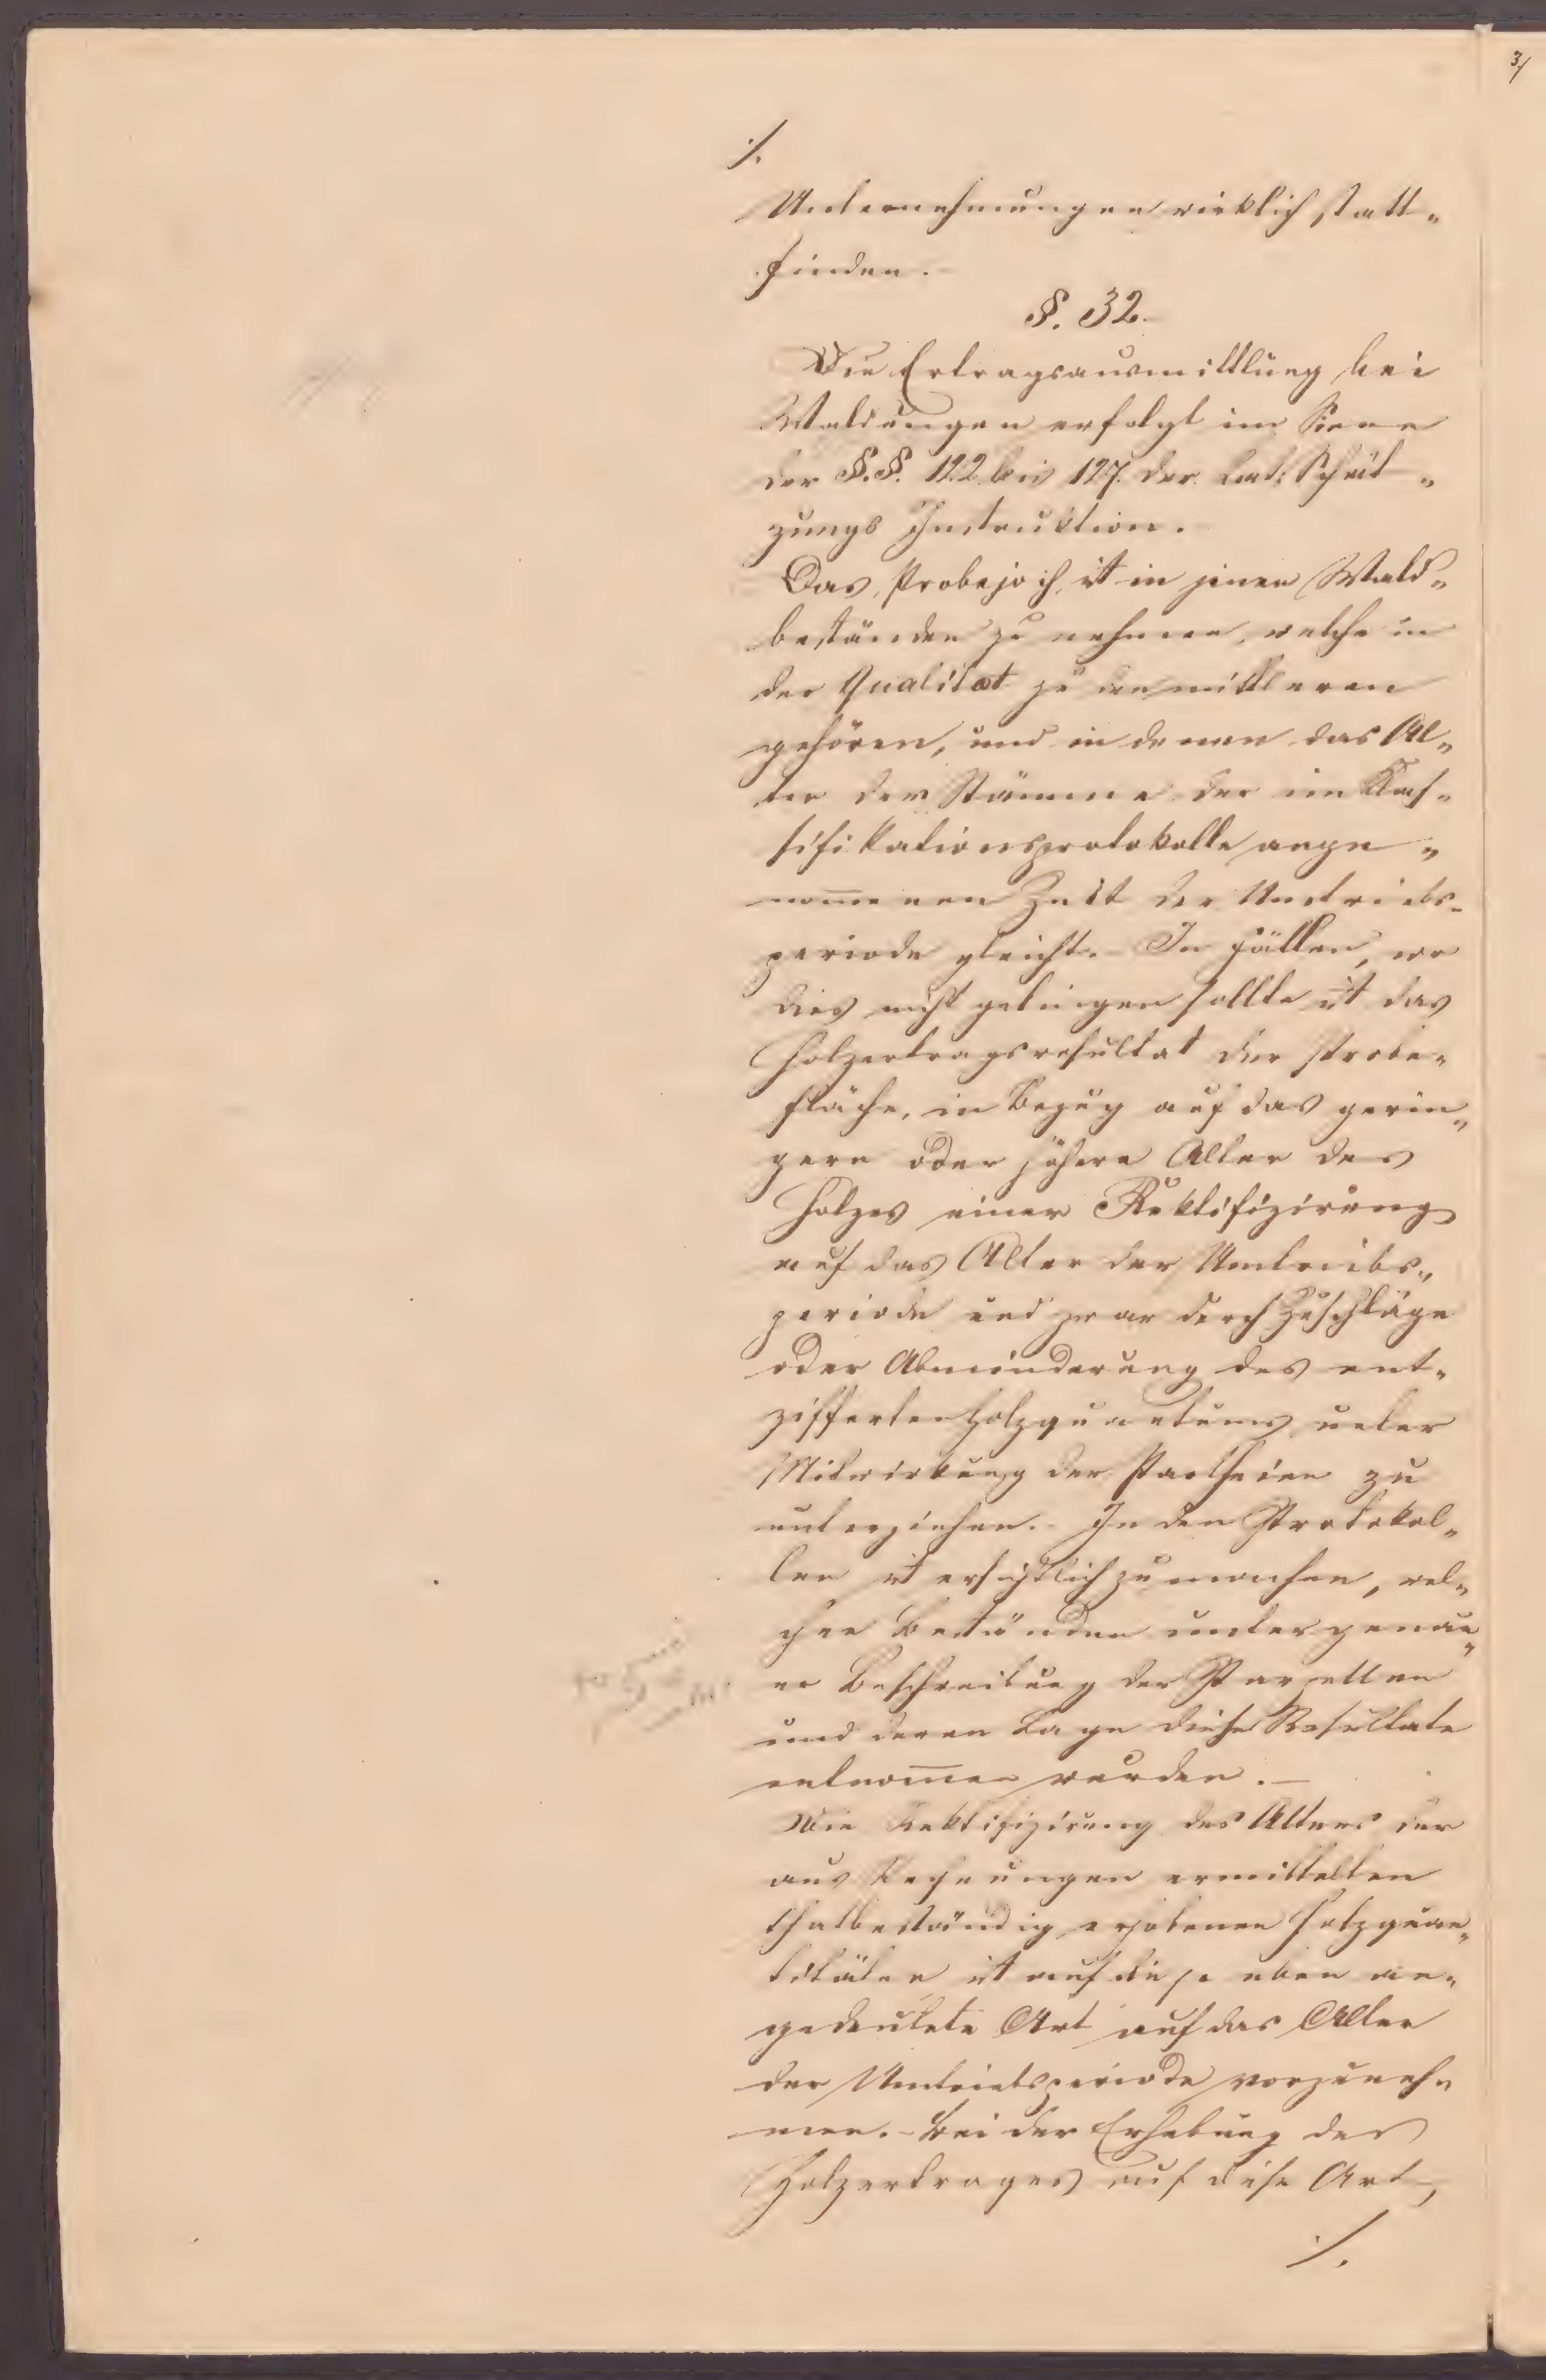 3/
./.
Unternehmungen wirklich statt„
finden.
§. 32.
Die Ertragsausmittlung bei
Waldungen erfolgt im Sinne
der §.§. 122 bis 127. der Cat: Schät„
zungs Instruktion.
Das Probejoch ist in jenen Wald„
beständen zu nehmen, welche in
der Qualität zu den mittleren
gehören, und in denen das Al„
ter der Stämme der im Klas„
sifikationsprotokolle ange„
nom̄enen Zeit der Umtriebs„
periode gleicht. In Fällen, wo
dies nicht gelingen sollte ist das
Holzertragsresultat der Probe„
fläche, in Bezug auf das gerin„
gere oder höhere Alter des
Holzes einer Rektifizirung
auf das Alter der Umtriebs„
periode und zwar durch Zuschläge
oder Abminderung des ent„
zifferten Holzquantums unter
Mitwirkung der Partheien zu
unterziehen. In den Protokol„
len ist ersichtlich zu machen, wel„
chen Beständen unter genau„
er Beschreibung der Parzellen
und deren Lage diese Resultate
entnom̄en wurden.—
Die Rektifizirung des Alters der
aus Rechnungen ermittelten
thatbeständig erhobenen Holzquan„
titäten ist auf die so eben an„
gedeutete Art auf das Alter
der Umtriebsperiode vorzuneh„
men.- Bei der Erhebung des
Holzertrages auf diese Art,
./.